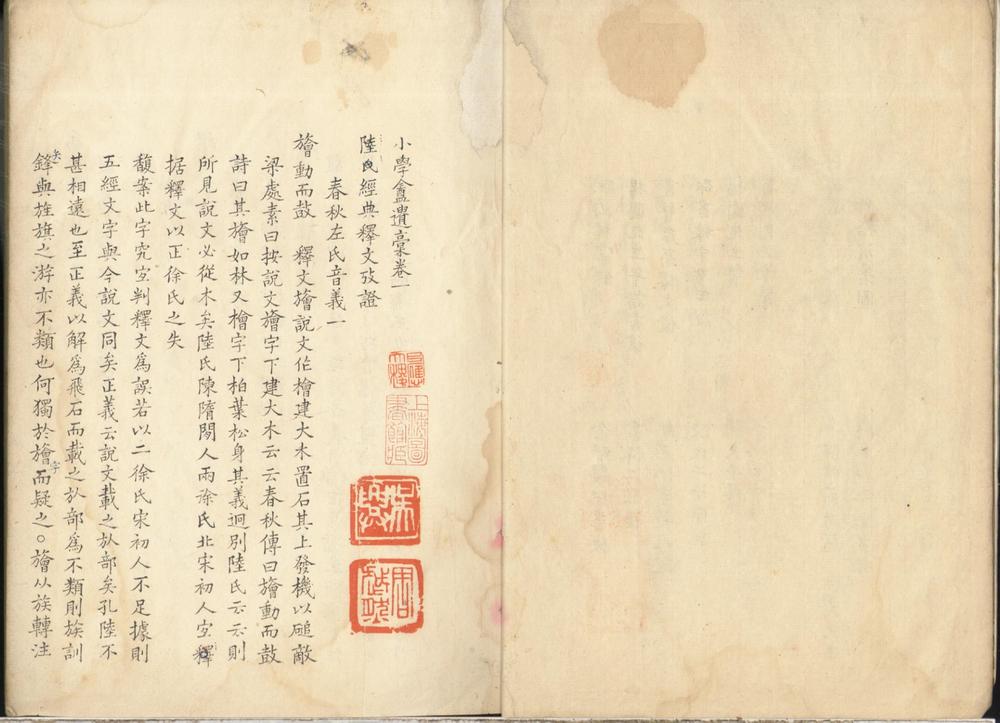 小學盦遺稾卷一
陸氏經典釋文攷證
春秋左氏音義一
旝動而鼓　釋文旝說文作檜建大木置石其上發機以磓敵
梁處素曰按說文旝字下建大木云云春秋傳曰旝動而鼓
詩曰其旝如林又檜字下柏葉松身其義迥別陸氏云云則
所見說文必從木矣陸氏陳隋閒人兩徐氏北宋初人宐釋
据釋文以正徐氏之失
馥案此字究宐判釋文爲誤若以二徐氏宋初人不足據則
五經文字與今說文同矣正義云說文載之㫃部矣孔陸不
甚相遠也至正義以解爲飛石而載之㫃部爲不類則族訓
矢鋒與旌旗之游亦不類也何獨於旝字而疑之○旝从族轉注
上海圖書館臧